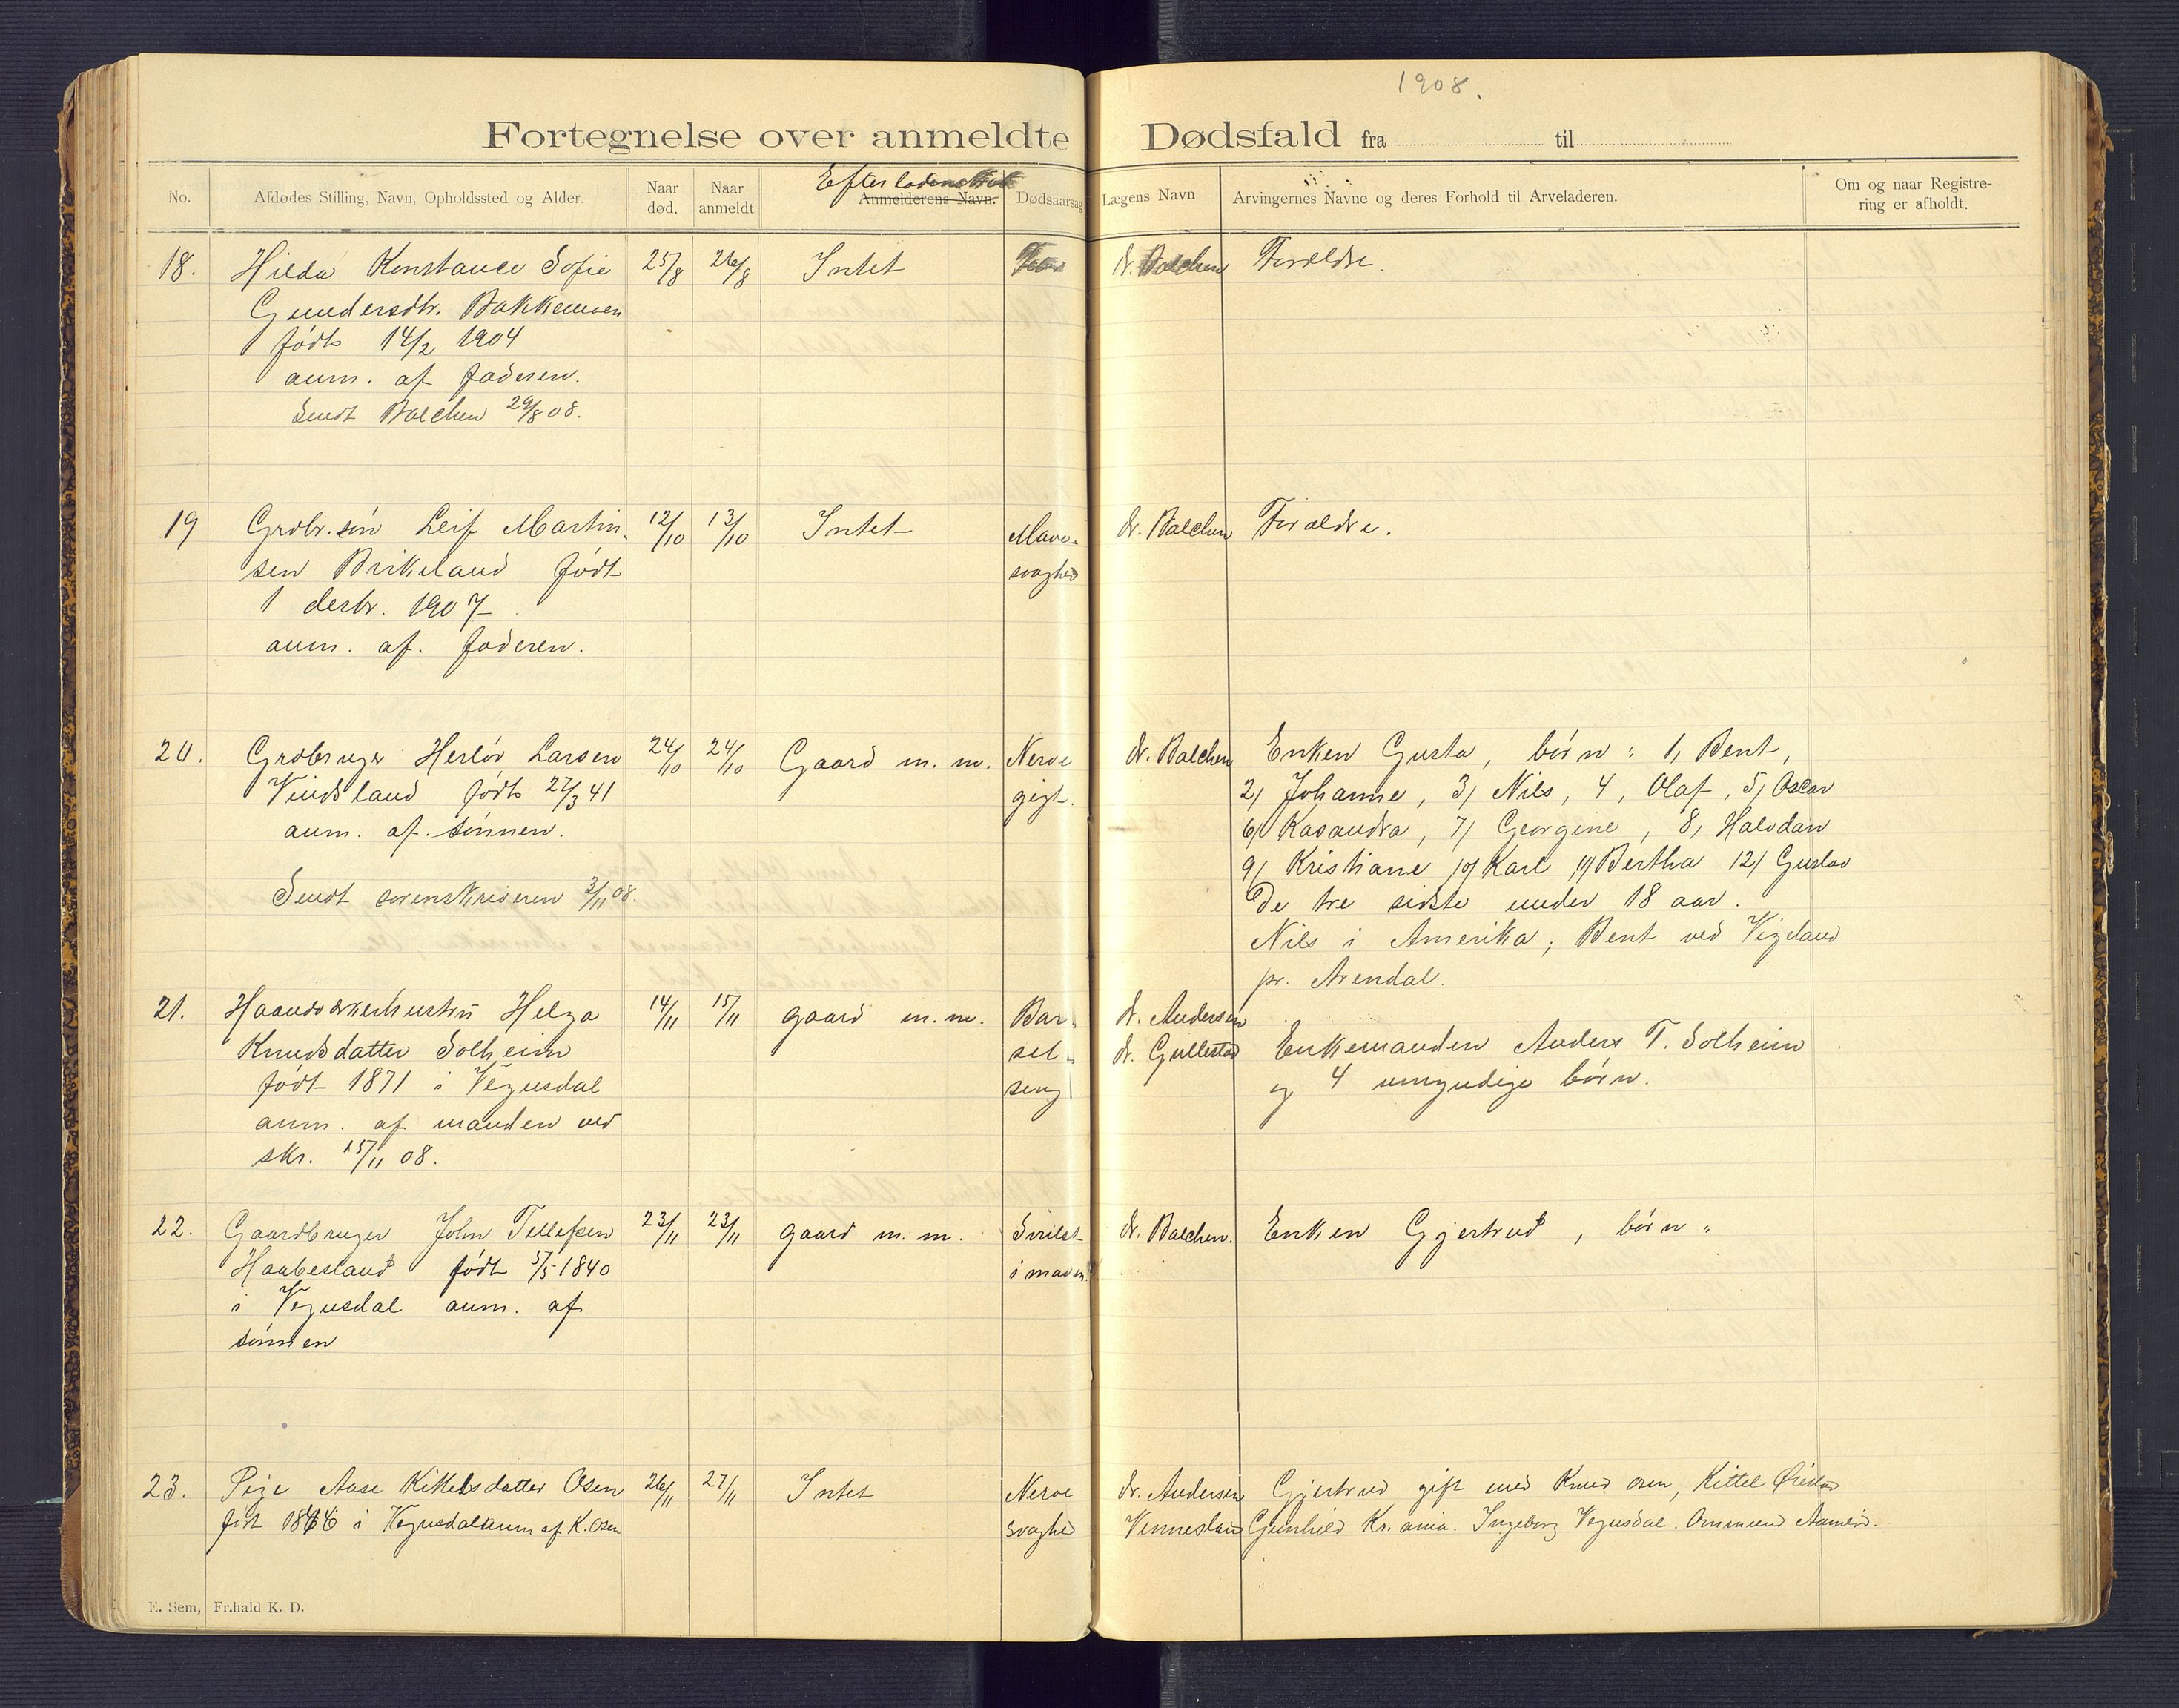 1908.
Fortegnelse over anmeldte Dødsfald fra til
No. Afdødes Stilling, Navn, Opholdssted og Alder. Naar død. Naar anmeldt Anmelderens Navn. Dødsaarsag Lægens Navn Arvingernes Navne og deres Forhold til Arveladeren. Om og naar Registrering er afholdt.
18. Hilda Konstance Sofie 25/8 26/8 Intet dr. Balchen Forældre.
Gundersdtr. Bakkemoen
født 14/2 1904
anm. af faderen.
Sendt Balchen 29/8 08.
19 Grdbr. søn Leif Martin- 12/10 13/10 Intet Mave- dr. Balchen Forældre.
sen Birkeland født svaghed
1 desbr. 1907
anm. af. faderen.
20. Grdbruger Herlöv Larsen 24/10 24/10 Gaard m. m. Nerve dr. Balchen Enken Gusta, börn: 1, Bent,
Vindsland født 27/3 41 gigt. 2, Johanne, 3, Nils, 4, Olaf, 5, Oscar
anm. af. sönnen. 6, Kasandra, 7, Georgine, 8, Halvdan
9, Kristiane 10, Karl 11, Bertha 12, Gustav
Sendt sorenskriveren 3/11 08. De tre sidste under 18 aar.
Nils i Amerika; Bent ved Vigeland
pr. Arendal.
21. Haandværkerhustru Helga 14/11 15/11 gaard m. m. Bar- dr. Andersen
Knudsdatter Solheim sel- dr. Gullestad Enkemanden Anders T. Solheim
født 1871 i Vegusdal seng og 4 umyndige börn.
anm. af manden ved
skr. 15/11 08.
22. Gaardbruger John Tellefsen 23/11 23/11 gaard m. m. dr. Balchen. Enken Gjertrud, börn:
Haabesland født 5/5 1840 i maven
i Vegusdal anm. af
sönnen
23. Pige Aase Kittelsdatter Osen 26/11 27/11 Intet Nerve dr. Andersen Gjertrud gift med Knud Osen, Kittel
født i Vegusdal anm af K. Osen svaghed Vennesland Gunhild Kr.ania. Ingeborg Vegusdal. Ommund
E. Sem, Fr.hald K. D.